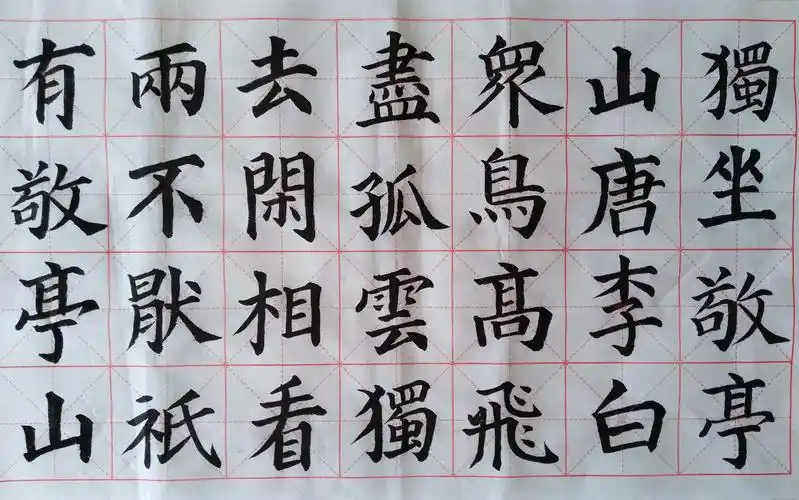 獨坐敬亭
山唐李白
眾鳥高飛
盡孤雲獨
去閑相看
兩不厭祇
有敬亭山